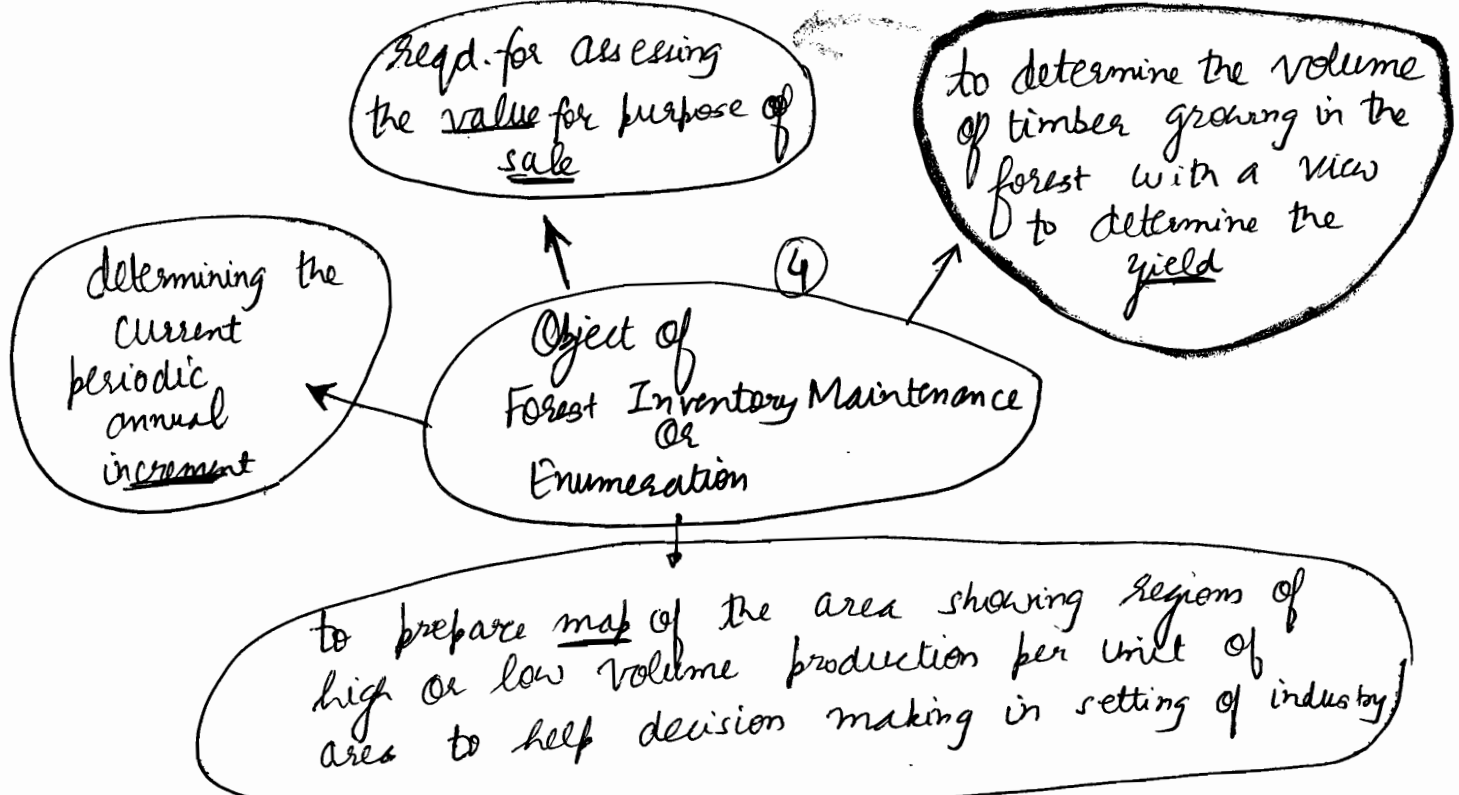 reqd. for assessing
the value for purpose of
sale
to determine the volume
of timber growing in the
forest with a view
to determine the
yield
determining the
current
periodic
annual
increment
4
Object of
Forest Inventory Maintenance
OR
Enumeration
to prepare map of the area showing regions of
high or low volume production per unit of
area to help decision making in setting of industry